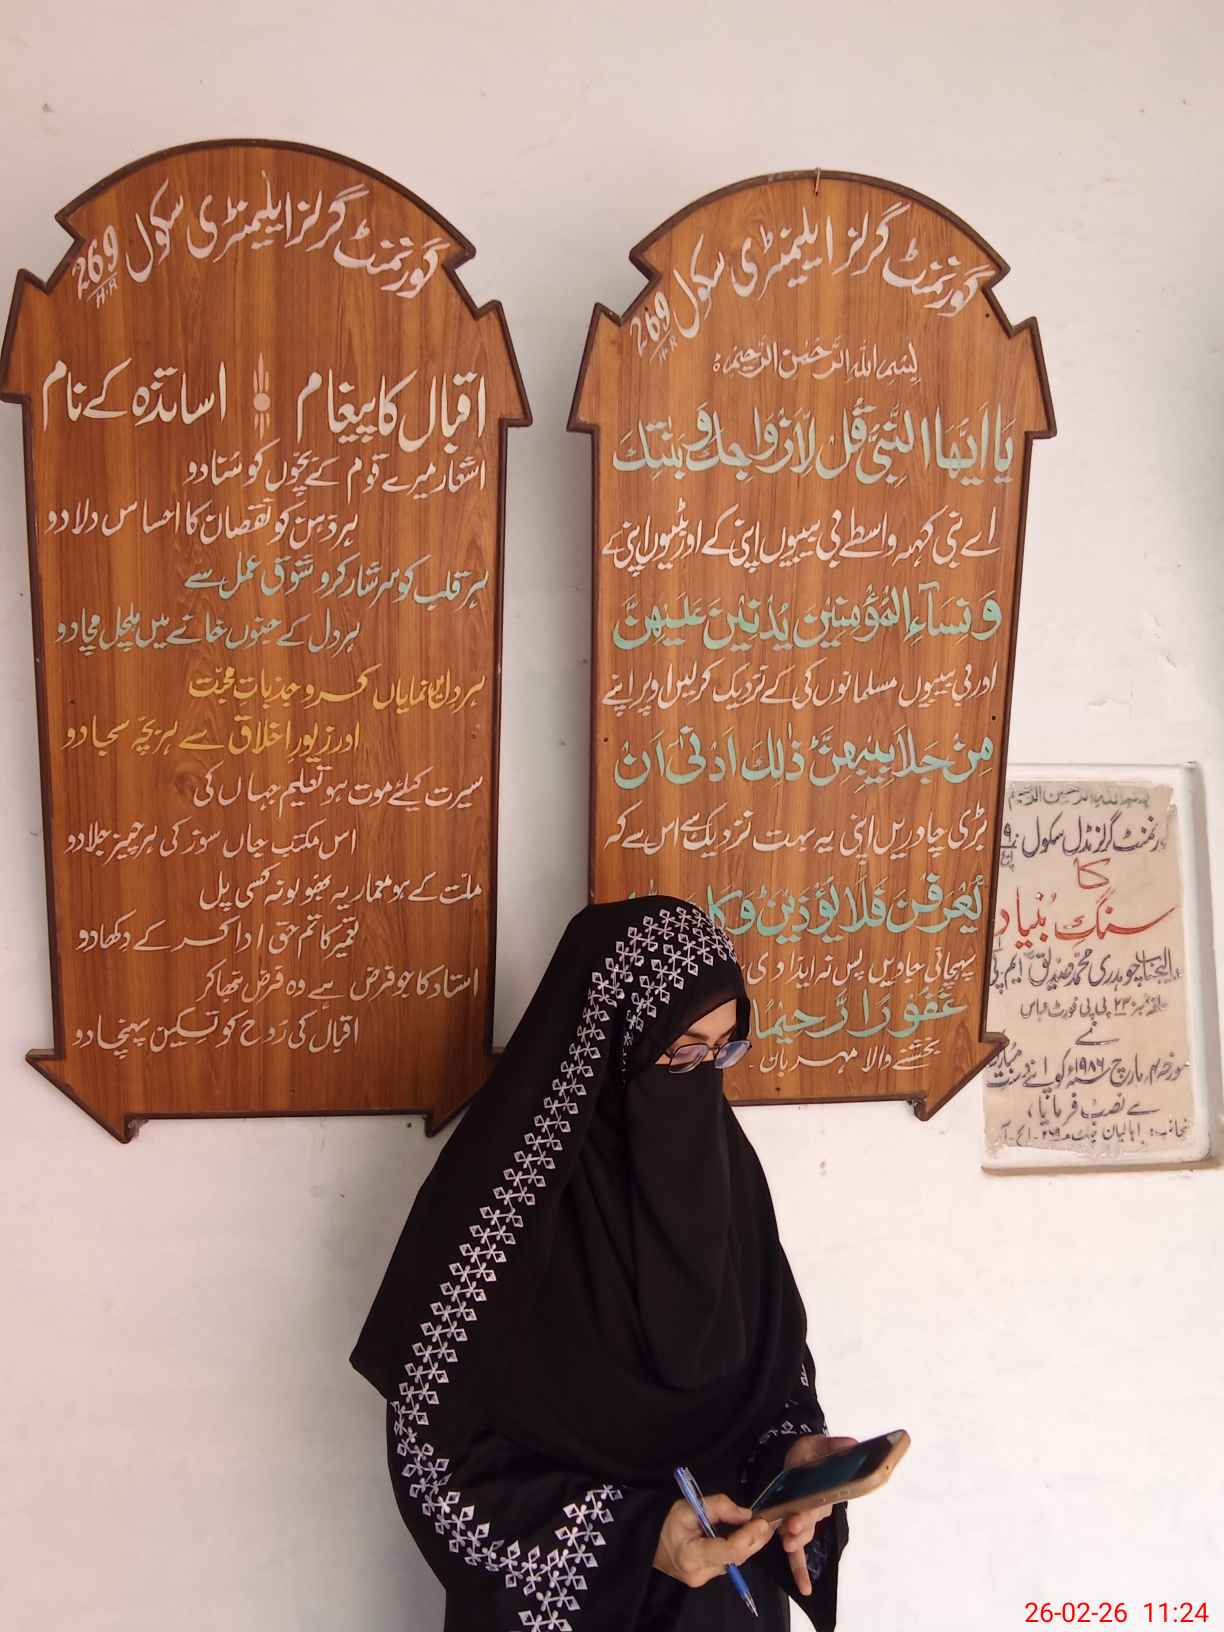 گورنمنٹ گرلز ایلیمنٹری سکول 269
H-R
اقبال کا پیغام اساتذہ کے نام
اشعار میرے قوم کے بچّوں کو سُنا دو
ہر ذہن کو نقصان کا احساس دلا دو
ہر قلب کو سرشار کرو شوق عمل سے
ہر دل کے صنوں خانے میں ہلچل مچا دو
ہر دل میں نمایاں کرو جذباتِ محبّت
اور زیورِ اخلاق سے ہر بچّہ سجا دو
سیرت کیلئے موت ہو تعلیم جہاں کی
اس مکتب جاں سوز کی ہر چیز جلا دو
ملّت کے ہو معمار یہ بھولو نہ کسی پل
تعمیر کا تم حق ادا کر کے دکھا دو
استاد کا جو فرض ہے وہ فرض نبھا کر
اقبال کی رُوح کو تسکین پہنچا دو
گورنمنٹ گرلز ایلیمنٹری سکول 269
H-R
بِسْمِ اللهِ الرَّحْمٰنِ الرَّحِيْمِ
يٰۤاَيُّهَا النَّبِىُّ قُلْ لِّاَزْوَاجِكَ وَ بَنٰتِكَ
اے نبی کہہ واسطے بی بیبیوں اپنی کے اور بیٹیوں اپنی کے
وَ نِسَآءِ الْمُؤْمِنِيْنَ يُدْنِيْنَ عَلَيْهِنَّ
اور بی بیبیوں مسلمانوں کی کے نزدیک کر لیں اوپر اپنے
مِنْ جَلَابِيْبِهِنَّ ذٰلِكَ اَدْنٰۤى اَنْ
بڑی چادریں اپنی یہ بہت نزدیک ہے اس سے کہ
يُّعْرَفْنَ فَلَا يُؤْذَيْنَ وَ كَانَ
پہچانی جاویں پس نہ ایذا دی
غَفُوْرًا رَّحِيْمًا
بخشنے والا مہربان۔
گورنمنٹ گرلز مڈل سکول
کا
سنگِ بُنیاد
عالیجناب چوہدری محمد صدیق ایم پی
حلقہ نمبر ۲۳ پی پی فورٹ عباس
نے
مورخہ مارچ ۱۹۸۶ء کو اپنے دست مبارک
سے نصب فرمایا،
منجانب: اہالیان چک ۲۶۹-ایچ-آر
26-02-26 11:24